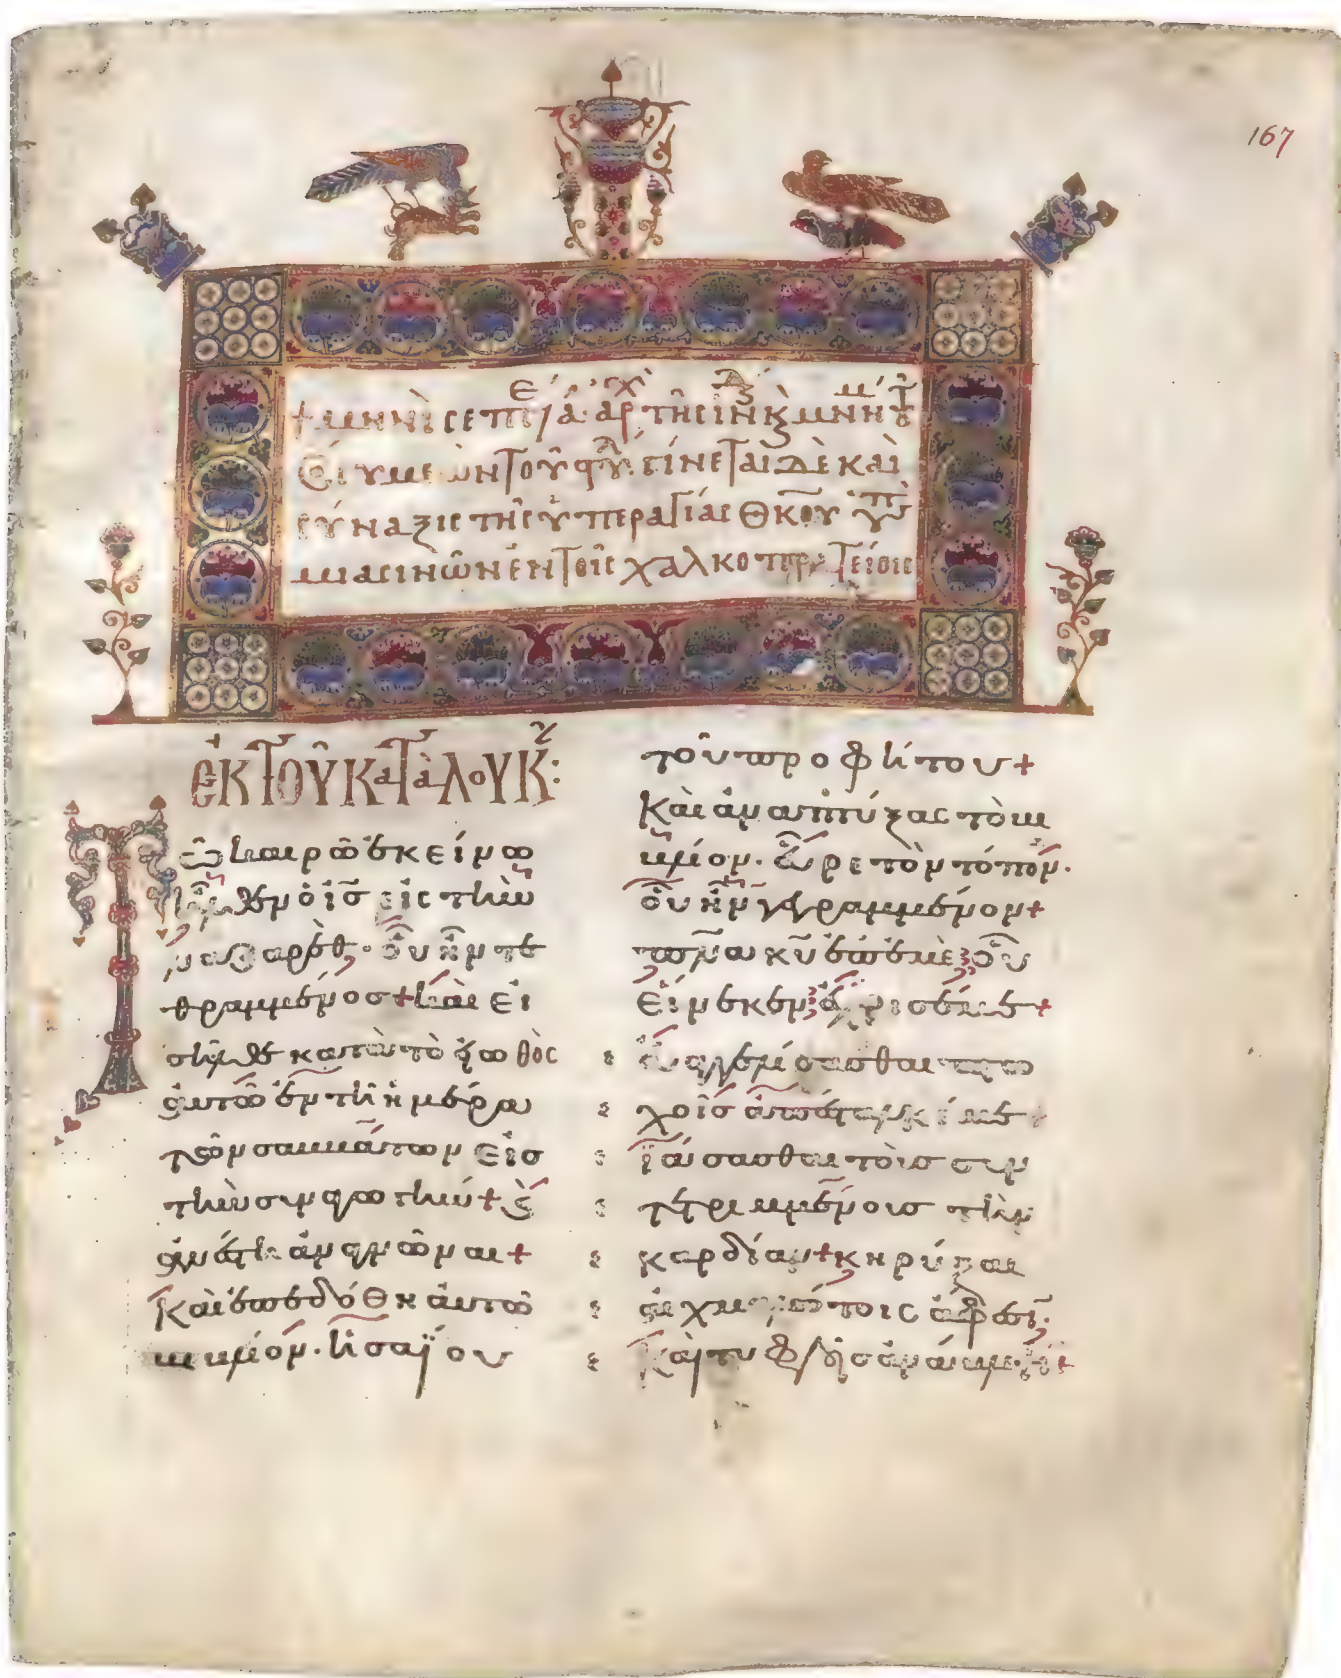 167
+ μηνὶ σεπ ά· ἀρχ τῆς ἰν κ μνήμ τ
Συμεὼν τοῦ γίνεται δὲ καὶ
σύναξις τῆς ὑπεραγίας Θκου
μιασινῶν ἐν τοῖς χαλκοπρατείοις
ἐκ τοῦ κατὰ λουκ:
Τῶ καιρῶ ἐκείνω
ἦλθεν ὁ ις εἰς τὴν
ναζαρέθ· οὗ ἦν τε
θραμμένος + καὶ εἰ
σῆλθε κατὰ τὸ εἰωθὸς
αὐτῶ ἐν τῆ ἡμέρα
τῶν σαββάτων εἰσ
τὴν συναγωγήν + καὶ
ἀνέστη ἀναγνῶναι +
Καὶ ἐπεδόθη αὐτῶ
βιβλίον· ἠσαΐου
τοῦ προφήτου +
Καὶ ἀναπτύξας τὸ βι
βλίον· εὗρε τὸν τόπον·
οὗ ἦν γεγραμμένον +
πνα κυ ἐπ ἐμὲ οὗ
εἵνεκεν ἔχρισέ με +
εὐαγγελίσασθαι πτω
χοῖς ἀπέσταλκέ με +
ἰάσασθαι τοὺς συν
τετριμμένους τὴν
καρδίαν + κηρύξαι
αἰχμαλώτοις ἄφεσιν·
Καὶ τυφλοῖς ἀνάβλεψιν +